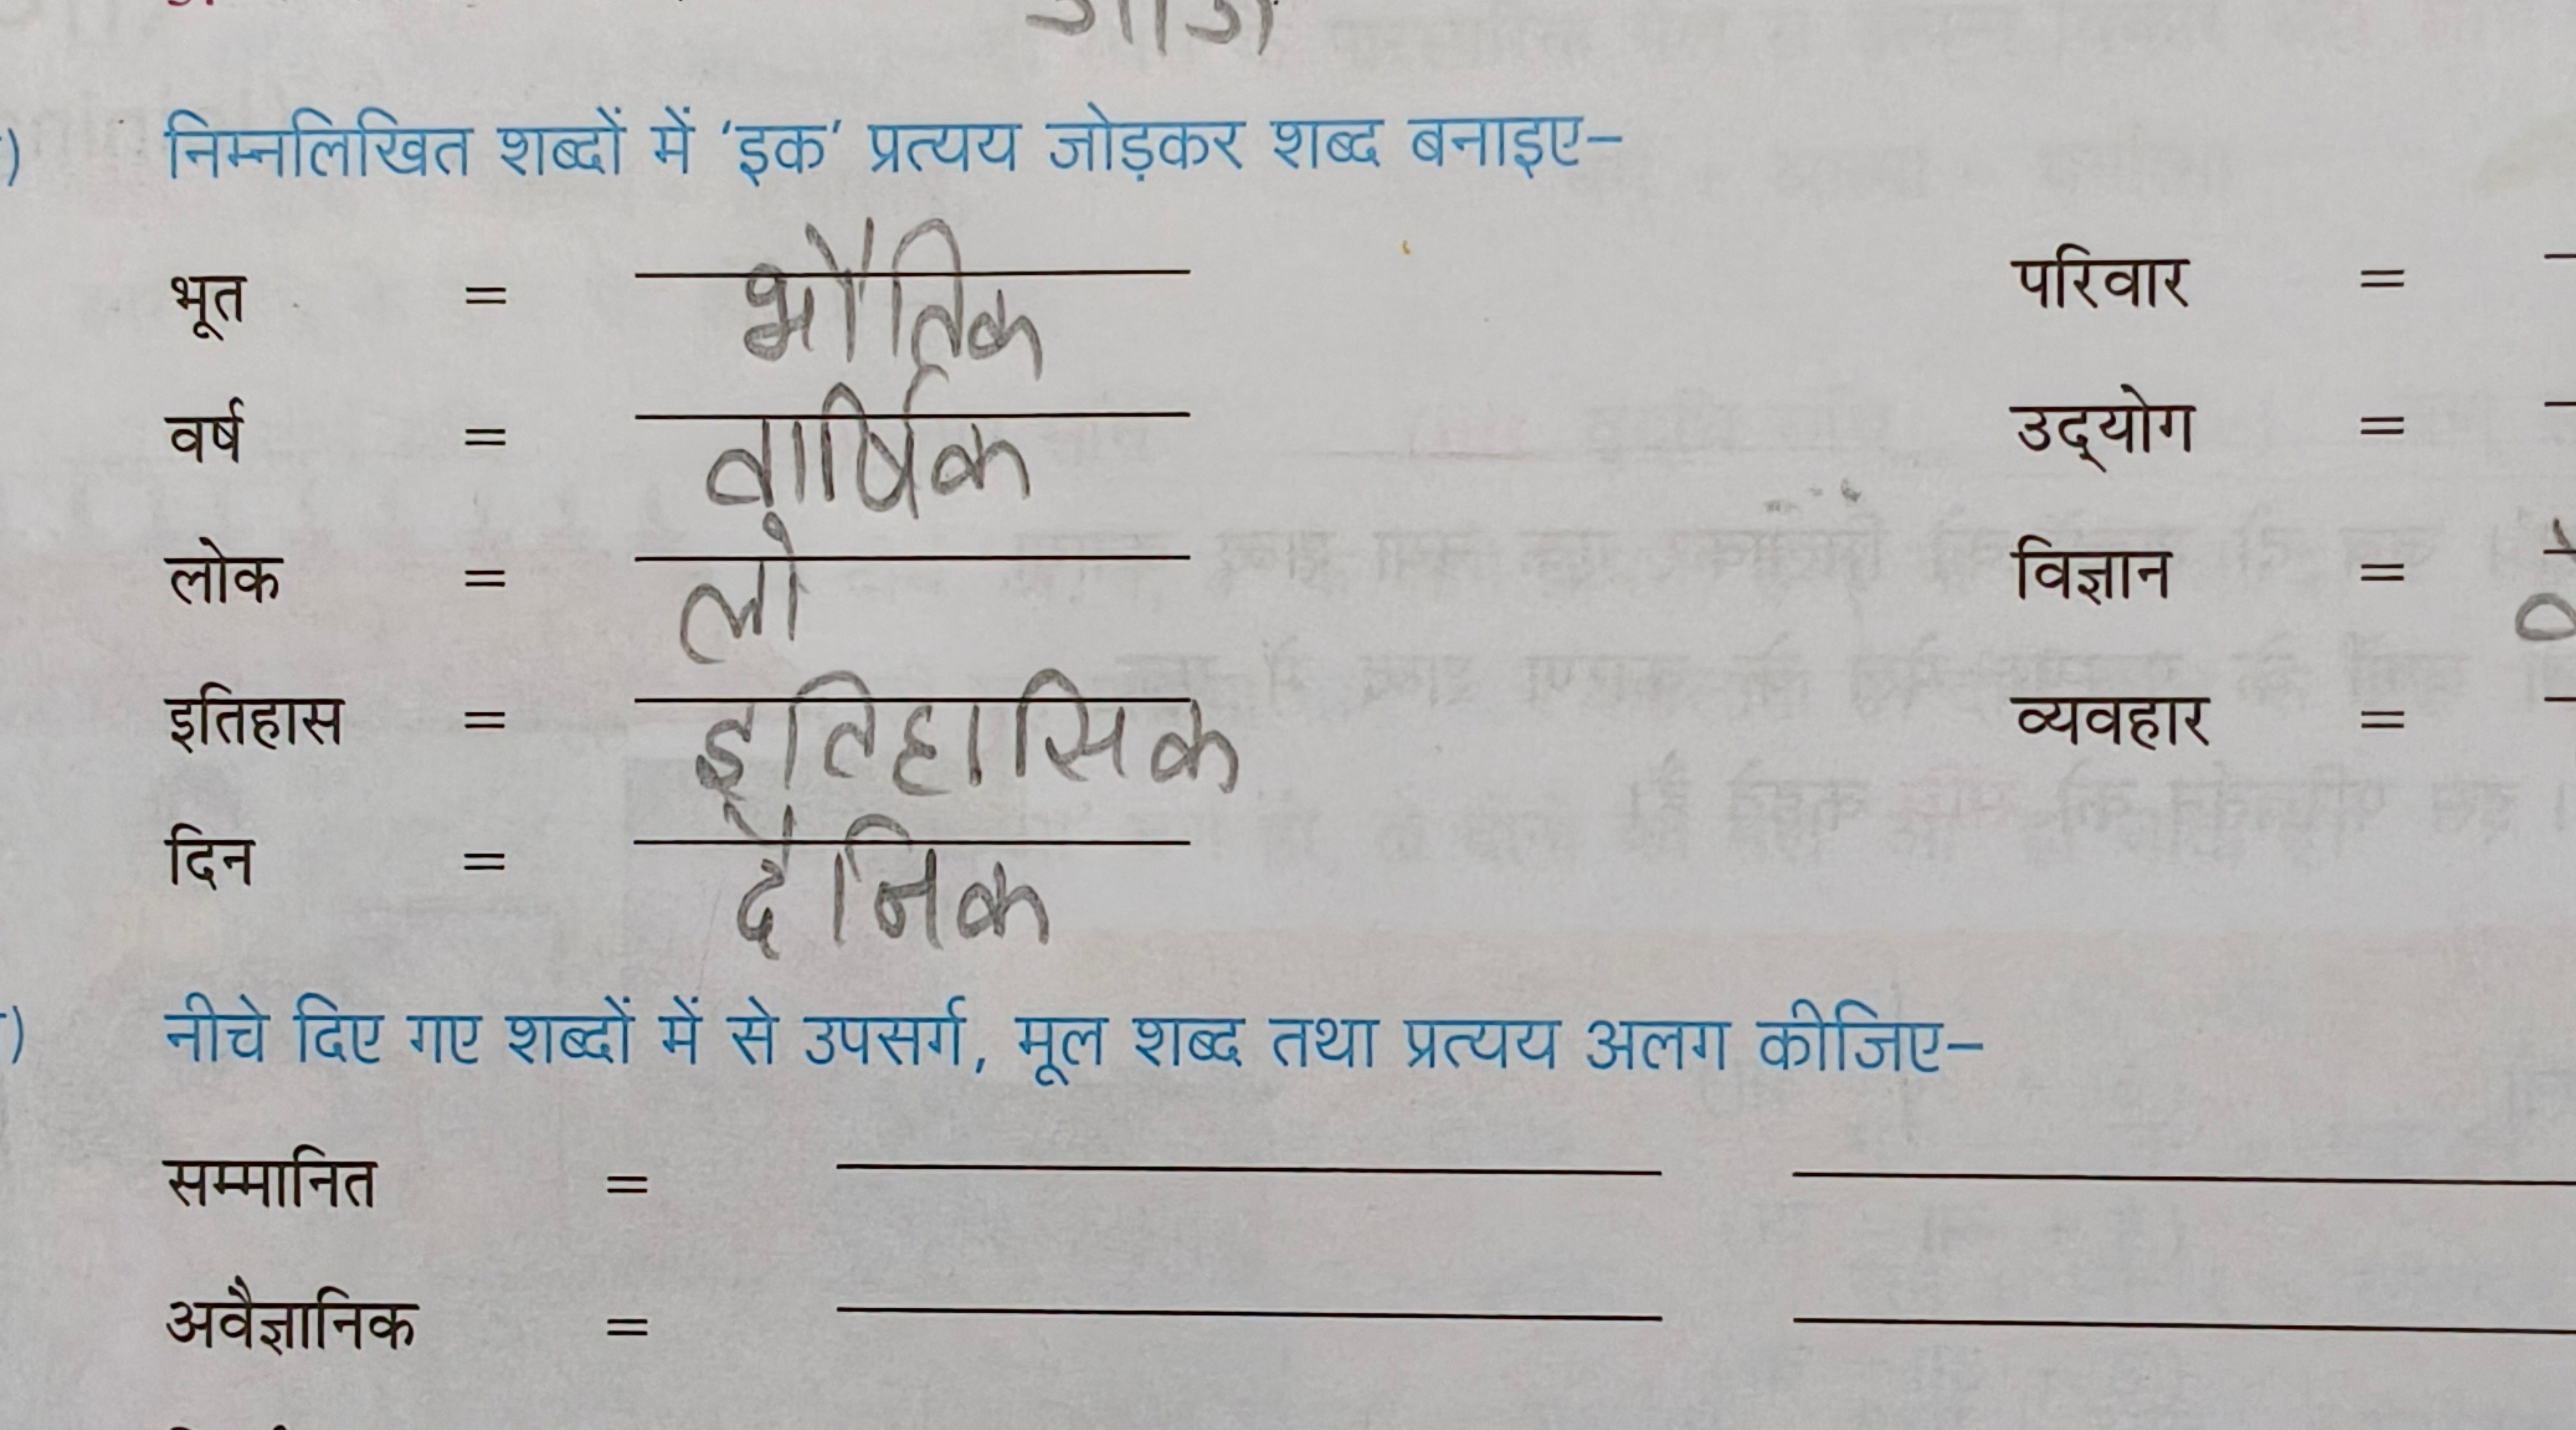 निम्नलिखित शब्दों में 'इक' प्रत्यय जोड़कर शब्द बनाइए–
भूत = भौतिक परिवार =
वर्ष = वार्षिक उद्‌योग =
लोक = लो विज्ञान =
इतिहास = इतिहासिक व्यवहार =
दिन = दैनिक
नीचे दिए गए शब्दों में से उपसर्ग, मूल शब्द तथा प्रत्यय अलग कीजिए–
सम्मानित =
अवैज्ञानिक =